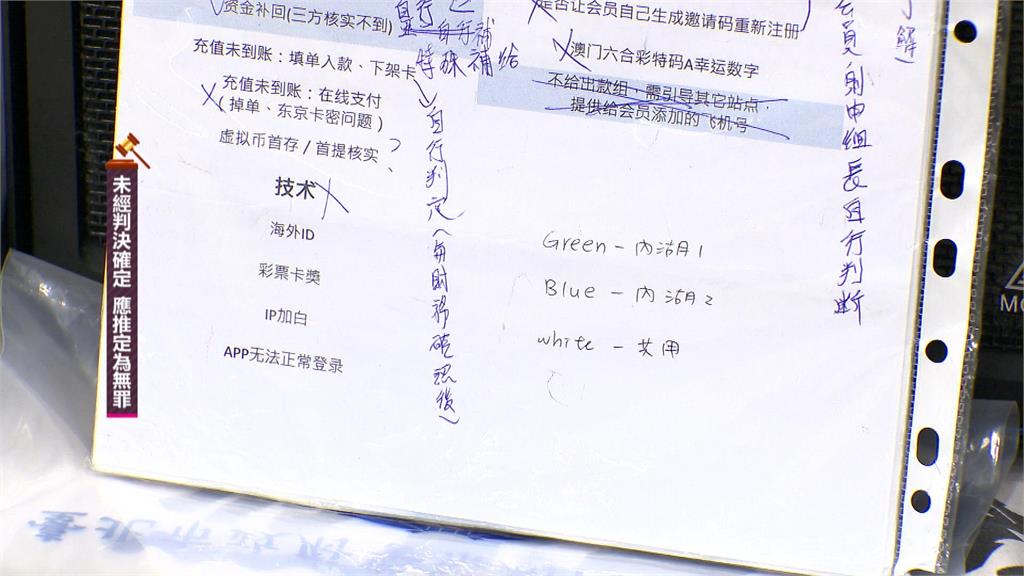 资金补回(三方核实不到)
自行补
特殊補給
充值未到账：填单入款、下架卡
充值未到账：在线支付
(掉单、东京卡密问题)
虚拟币首存/首提核实
?
技术
海外ID
彩票卡奬
IP加白
APP无法正常登录
自行判定(每財務確認後)
是否让会员自己生成邀请码重新注册)
澳门六合彩特码A幸运数字
不给出款组，需引导其它站点，
提供给会员添加的飞机号
Green - 內湖1
Blue - 內湖2
white - 共用
了解)
組長自行判断
未經判決確定 應推定為無罪
臺北市